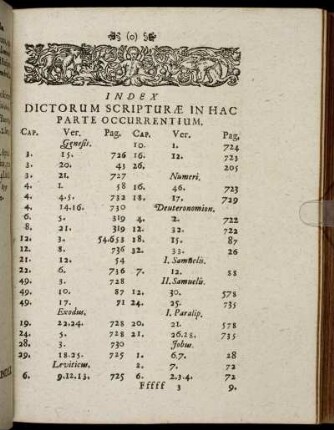 (0)
INDEX
DICTORUM SCRIPTURÆ IN HAC
PARTE OCCURRENTIUM.
CAP. Ver. Pag. CAP. Ver. Pag.
Genesis. 10. 1. 724
1. 15. 726 16. 12. 723
3. 20. 43 26. 205
3. 21. 727 Numeri.
4. 1. 58 16. 46. 723
4. 4.5. 732 18. 17. 729
4. 14.16. 730 Deuteronomion.
6. 5. 319 4. 2. 722
8. 21. 319 12. 32. 722
12. 3. 54.653 18. 15. 87
12. 8. 736 32. 33. 26
21. 12. 54 I. Samuelis.
22. 6. 736 7. 12. 88
49. 3. 728 II. Samuelis.
49. 10. 87 12. 30. 578
49. 17. 71 24. 25. 735
Exodus. I. Paralip.
19. 22.24. 728 20. 21. 578
24. 5. 728 21. 26.28. 735
28. 3. 730 Jobus.
29. 18.25. 725 1. 6.7. 28
Leviticus. 2. 7. 72
6. 9.12.13. 725 6. 2.3.4. 72
Fffff 3 9.